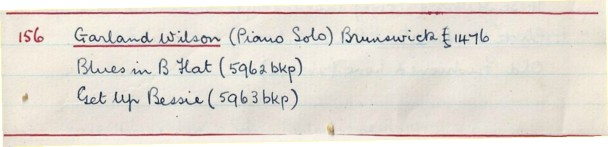 156 Garland Wilson (Piano Solo) Brunswick £1476
Blues in B Flat (5962bkp)
Get Up Bessie (5963bkp)